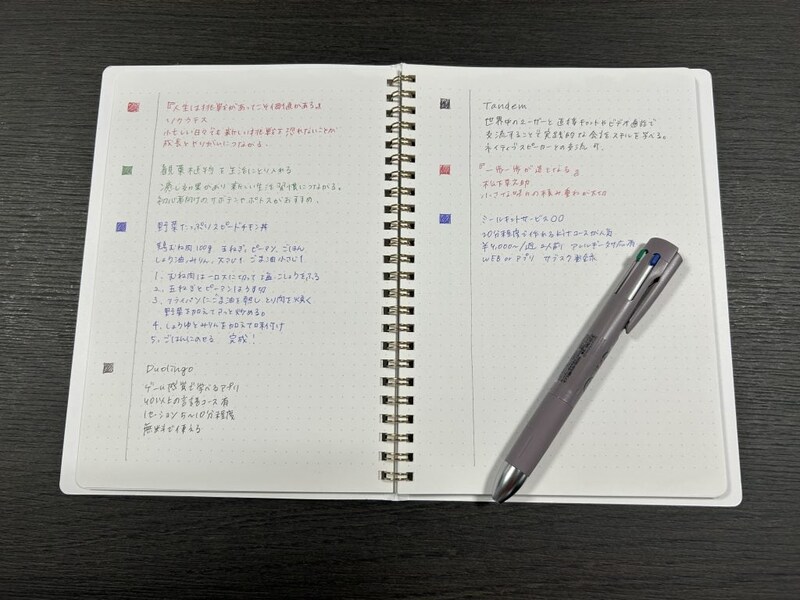 『人生は挑戦があってこそ価値がある』
ソクラテス
忙しい日々でも新しい挑戦を恐れないことが
成長とやりがいにつながる。
観葉植物を生活にとり入れる
癒し効果があり新しい生活習慣につながる。
初心者向けのサボテンやポトスがおすすめ。
野菜たっぷりスピードチキン丼
鶏むね肉100g 玉ねぎ、ピーマン、ごはん
しょう油、みりん、大さじ1 ごま油小さじ1
1. むね肉は一口大に切って塩こしょうをふる
2. 玉ねぎとピーマンはうす切り
3. フライパンにごま油を熱しとり肉を焼く
野菜を加えてサッと炒める。
4. しょうゆとみりんを加えて味付け
5. ごはんにのせる 完成!
Duolingo
ゲーム感覚で学べるアプリ
40以上の言語コース有
1セッション5〜10分程度
無料で使える
Tandem
世界中のユーザーと直接チャットやビデオ通話で
交流することで実践的な会話スキルを学べる。
ネイティブスピーカーとの交流可。
『一歩一歩が道となる』
松下幸之助
小さな努力の積み重ねが大切
ミールキットサービス〇〇
20分程度で作れるおかずコースが人気
¥4,000〜/週 2人前 アレルギー対応有
WEB or アプリ サブスク要登録